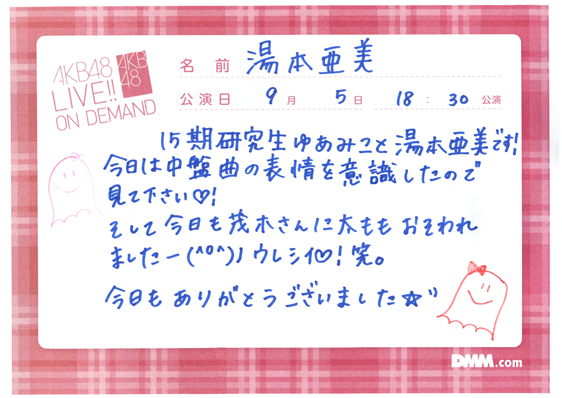 AKB48
LIVE!!
ON DEMAND
AKB
48
名前 湯本亜美
公演日 9月 5日 18:30公演
15期研究生ゆあみこと湯本亜美です!
今日は中盤曲の表情を意識したので
見て下さい♡!
そして今日も茂木さんに太ももおそわれ
ましたー(^o^)丿ウレシイ♡!笑。
今日もありがとうございました☆"
DMM.com